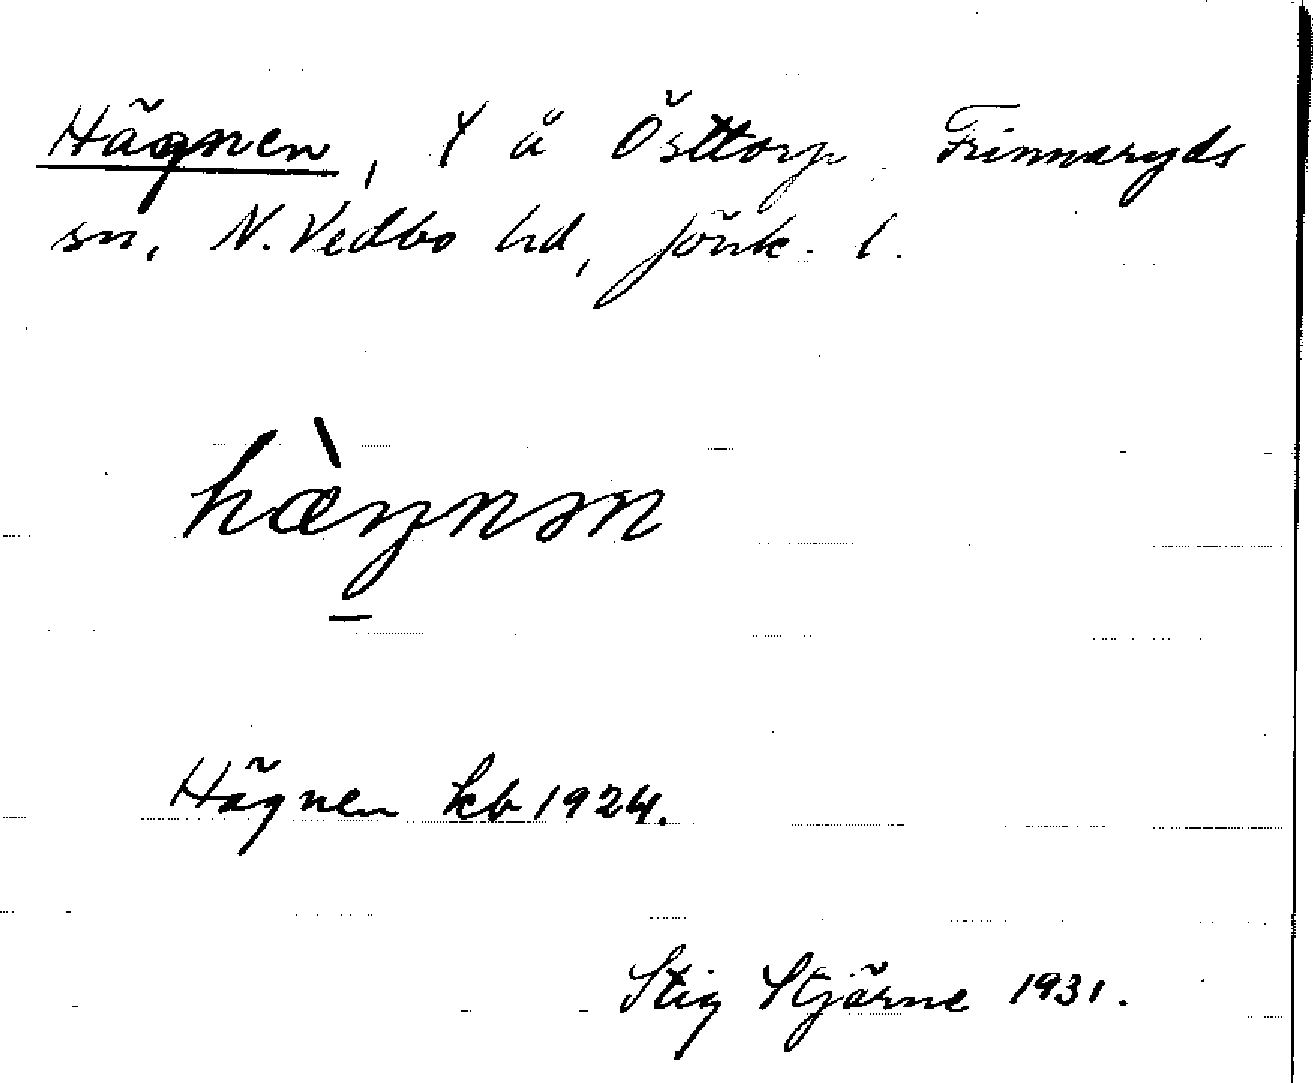 Hägnen, Y å Östtorp Frinnaryds
sn. N. Vedbo hd, Jönk. l.
hæ̀ŋnən
Hägnen kb 1924.
Stig Stjärne 1931.